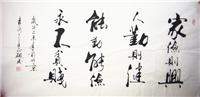 家儉則興
人勤則健
能勤能儉
永不貧賤